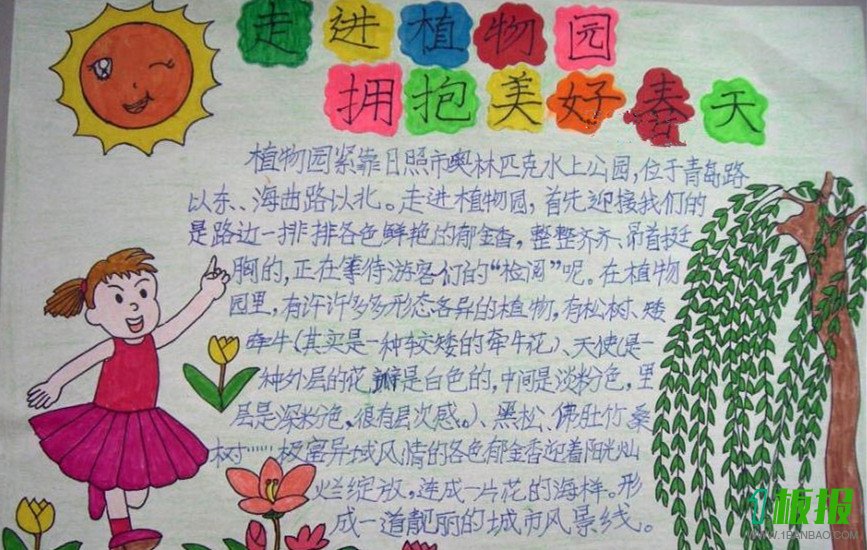 走进植物园
拥抱美好春天
植物园紧靠日照市奥林匹克水上公园,位于青岛路
以东、海曲路以北。走进植物园,首先迎接我们的
是路边一排排各色鲜艳的郁金香,整整齐齐、昂首挺
胸的,正在等待游客们的“检阅”呢。在植物
园里,有许许多多形态各异的植物,有松树、矮
牵牛(其实是一种较矮的牵牛花)、天使(是
一种外层的花瓣是白色的,中间是淡粉色,里
层是深粉色,很有层次感。)、黑松、佛肚竹、桑
树……极富异域风情的各色郁金香迎着阳光灿
烂绽放,连成一片花的海样。形
成一道靓丽的城市风景线。
1板报
WWW.1BANBAO.COM